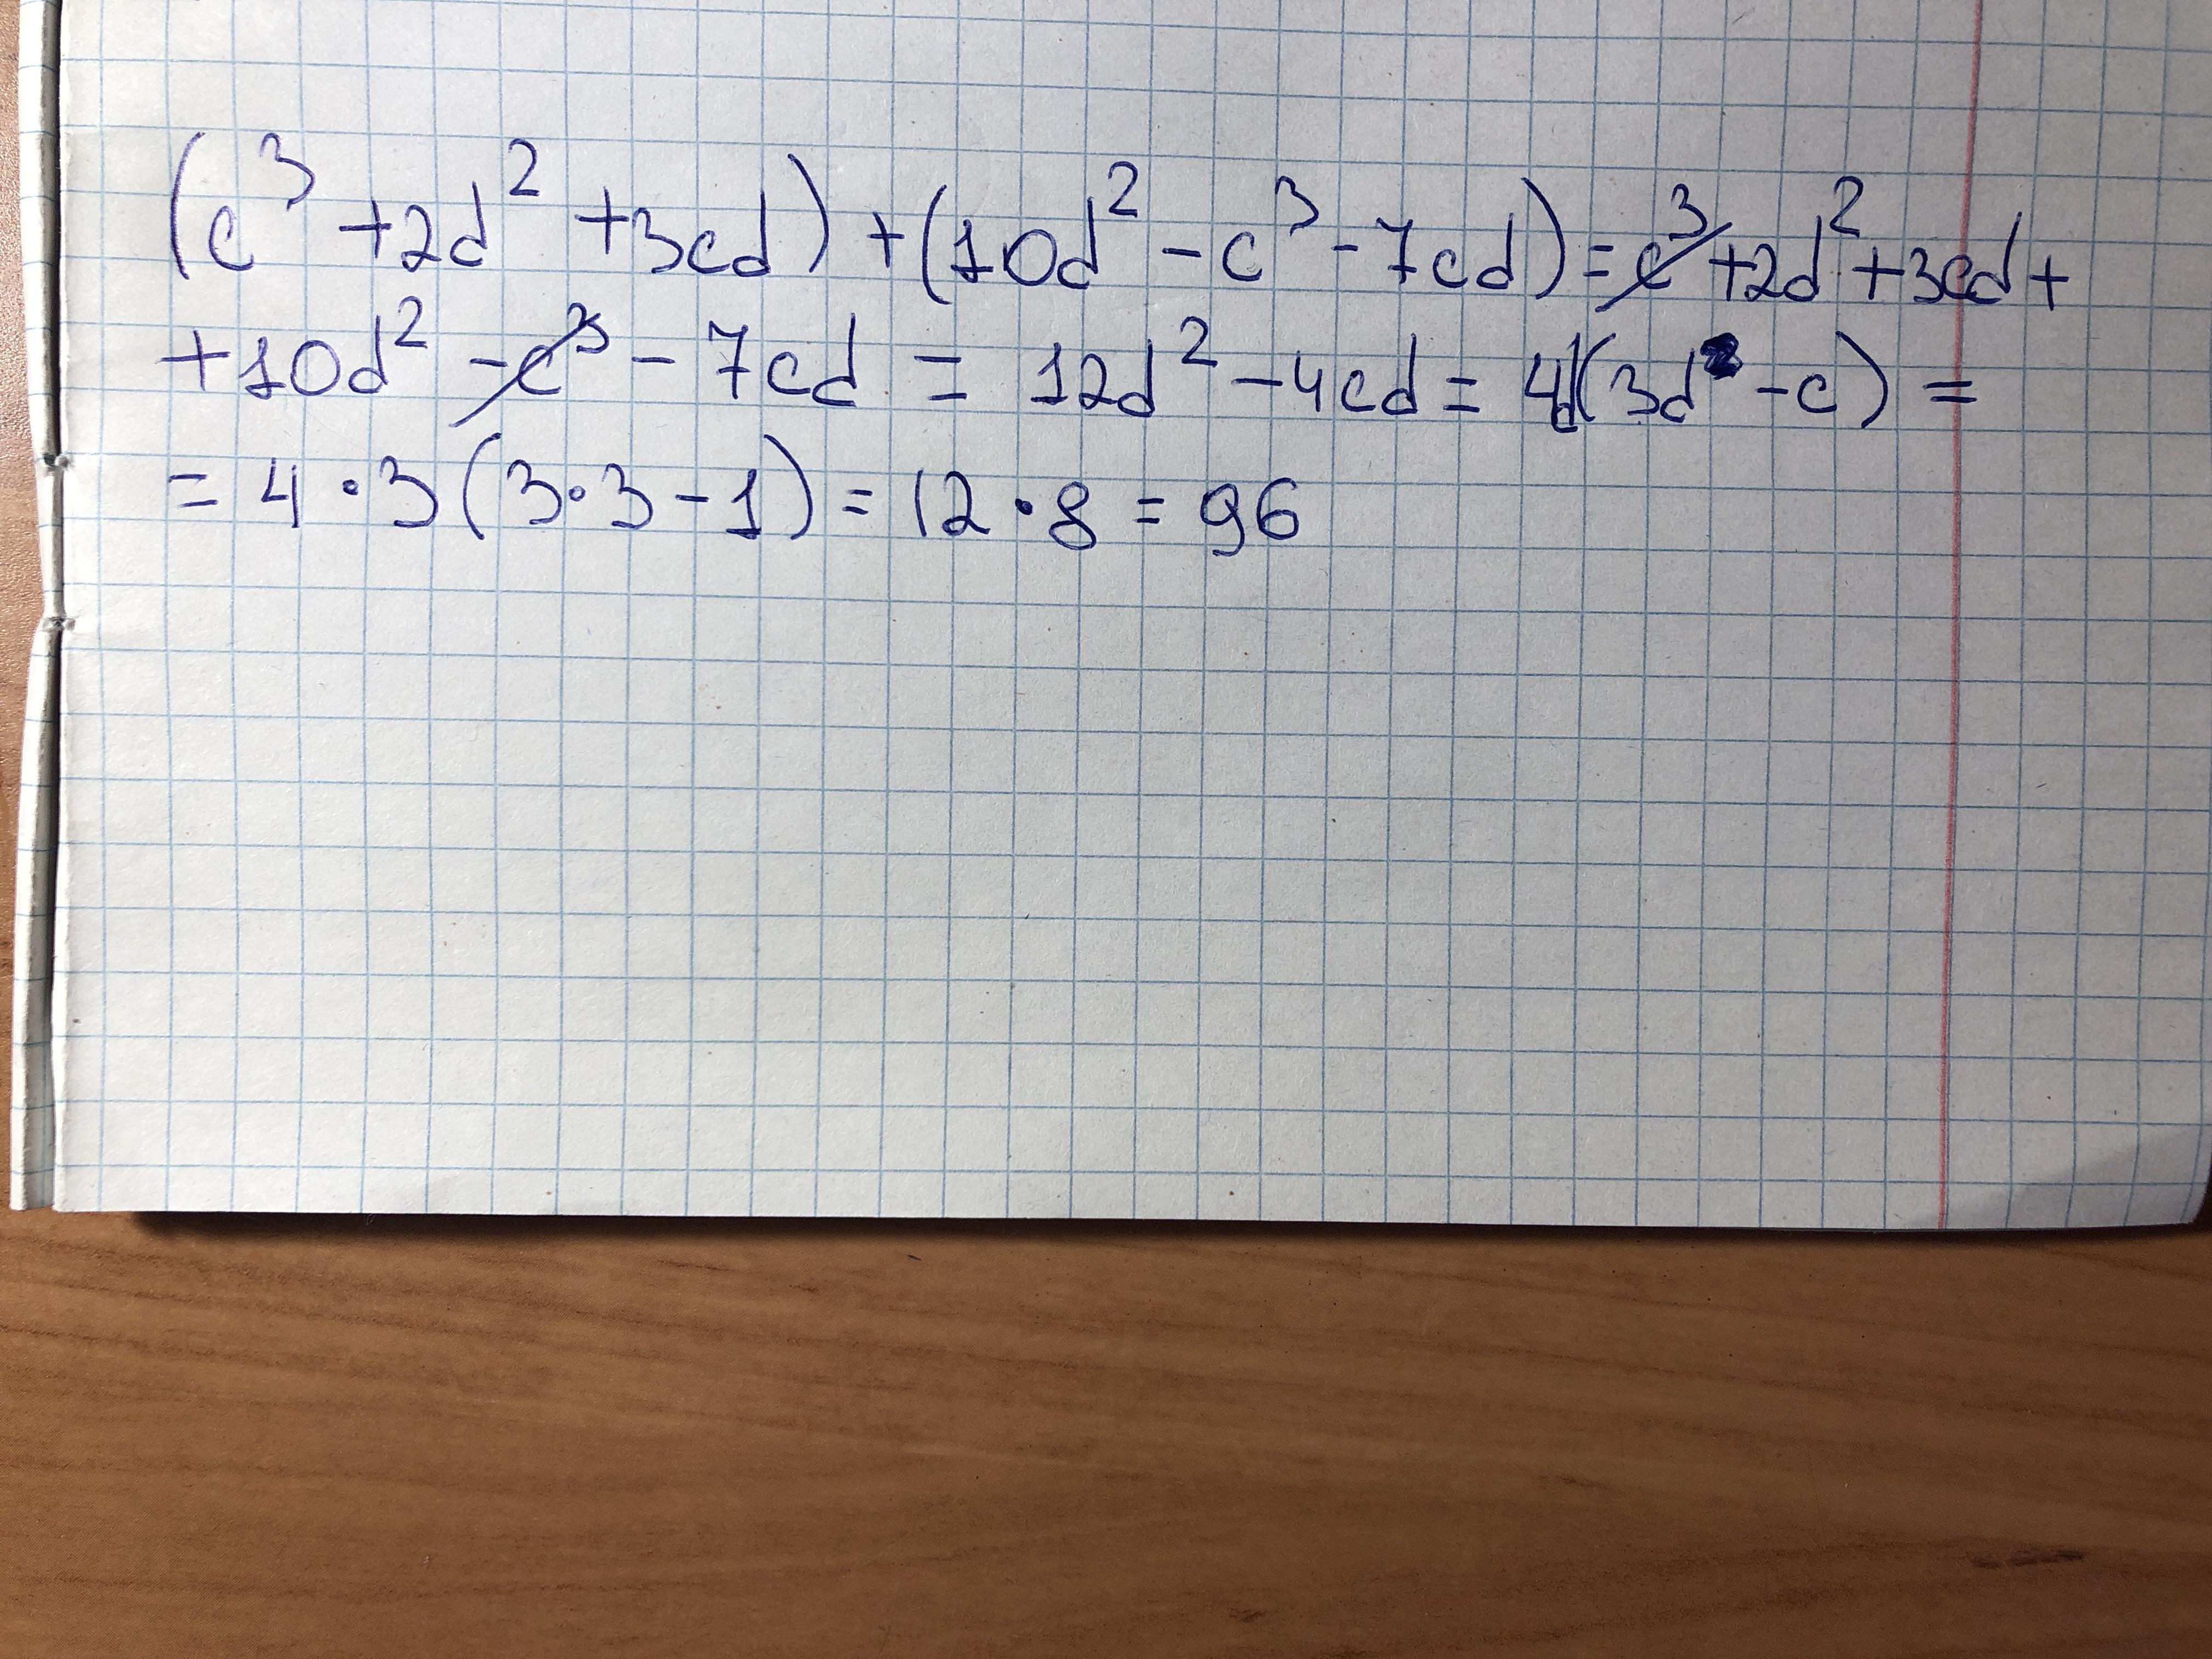 (c³ + 2d² + 3cd) + (10d² - c³ - 7cd) = c³ + 2d² + 3cd +
+ 10d² - c³ - 7cd = 12d² - 4cd = 4d(3d - c) =
= 4 · 3 (3 · 3 - 1) = 12 · 8 = 96